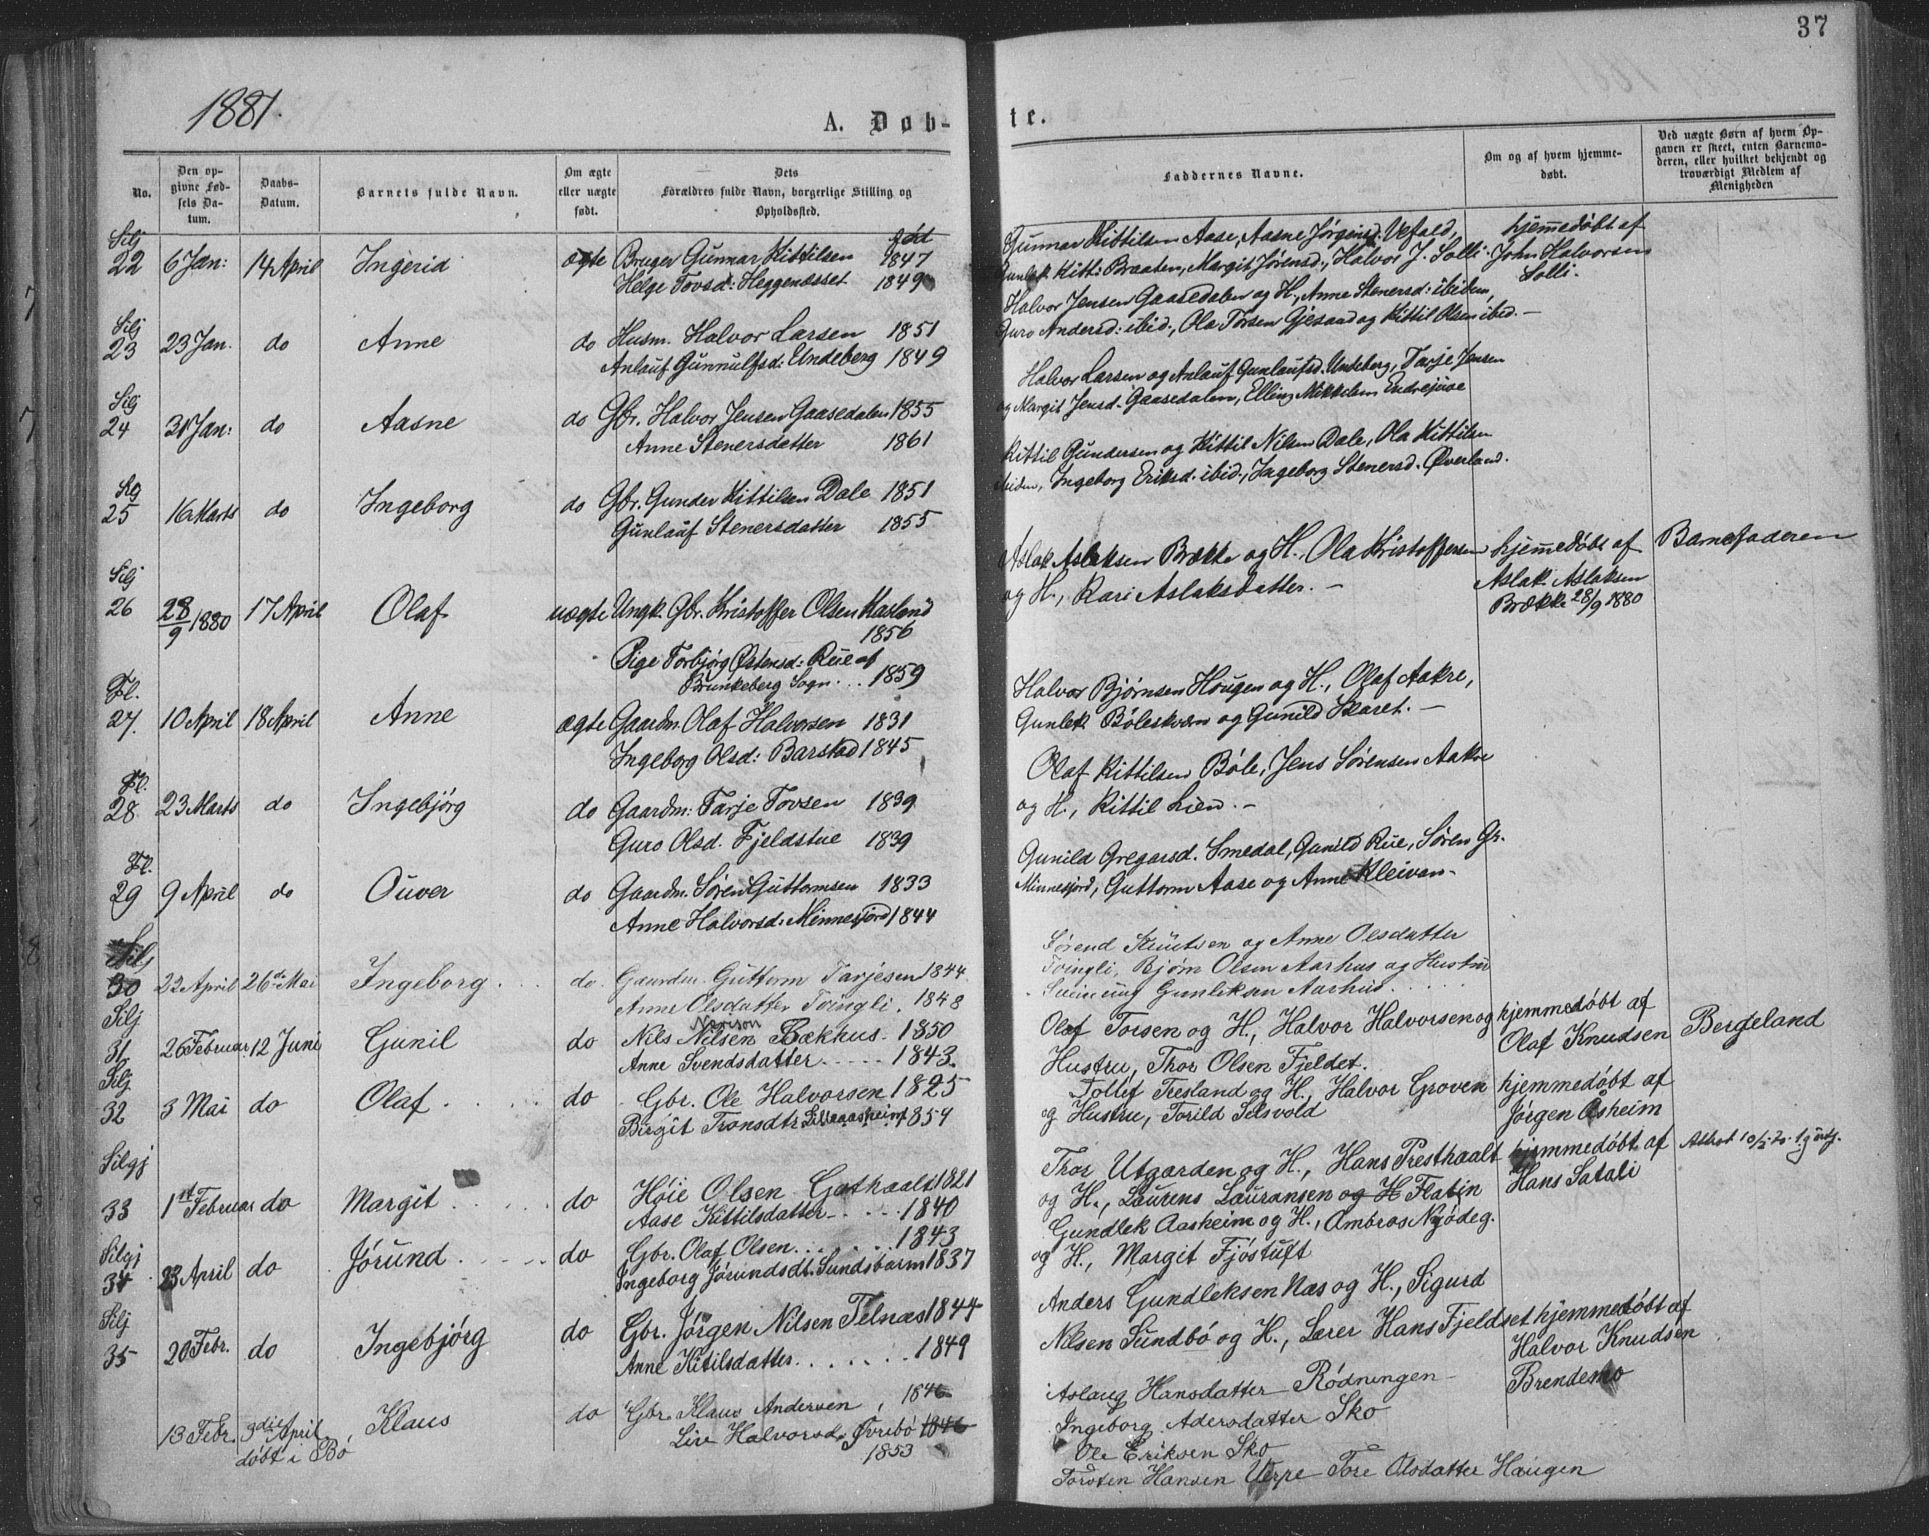 37
1881.
A. Døb-
te.
No.
Den op-
givne Fød-
sels Da-
tum.
Daabs-
Datum.
Barnets fulde Navn.
Om ægte
eller uægte
født.
Dets
Forældres fulde Navn, borgerlige Stilling og
Opholdssted.
Faddernes Navne.
Om og af hvem hjemme-
døbt.
Ved uægte Børn af hvem Op-
gaven er skeet, enten Barnemo-
deren, eller hvilket bekjendt og
troværdigt Medlem af
Menigheden
født
Silj
22 6 Jan: 14 April Ingerid ægte Bruger Gunnar Kittilsen 1847
Helge Tovsd: Heggenæsset 1849
Gunnar Kittilsen Aase, Aasne Jørgensd: Vefald,
Gunlek Kitt: Braaten, Margit Jørensd., Halvor J. Solli.
Halvor Jensen Gaasedalen og H., Anne Stenersd: ibidem,
hjemmedøbt af
John Halvorsen
Solli.
Silj
23 23 Jan. do Anne do Husm. Halvor Larsen 1851
Anlauf Gunnulfsd: Undeberg 1849
Guro Andersd: ibid., Ola Torsen Gjesaa og Kittil Olsen ibid. —
Halvor Larsen og Anlauf Gunlaufsd. Undeberg, Tarje Jensen
Silj
24 31 Jan: do Aasne do Gbr. Halvor Jensen Gaasedalen 1855
Anne Stenersdatter 1861
og Margit Jensd. Gaasedalen, Elling Mikkilsen Endrejuve
Kittil Gundersen og Kittil Nilsen Dale, Ola Kittilsen
ibidem, Ingeborg Eriksd. ibid., Ingeborg Stenersd. Øverland.
25 16 Marts do Ingeborg do Gbr. Gunder Kittilsen Dale 1851
Gunlauf Stenersdatter 1855
Silj
26 28/9 1880 17 April Olaf uægte Ungk. Gbr. Kristoffer Olsen Hasland
1856
Pige Torbjørg Østensd: Rue af
Brunkeberg Sogn... 1859
Aslak Aslaksen Brække og H., Ola Kristoffersen
og H., Kari Aslaksdatter. —
hjemmedøbt af
Aslak Aslaksen
Brække 28/9 1880
Barnefaderen
Fl.
27. 10 April 18 April Anne ægte Gaardm. Olaf Halvorsen 1831
Ingeborg Olsd: Barstad 1845
Halvor Bjørnsen Haugen og H., Olaf Aakre,
Gunlek Bøleskvæn og Gunild Skaret. —
Fl.
28 23 Marts do Ingebjørg do Gaardm: Tarje Tovsen 1839
Guro Olsd. Fjeldstue 1839
Olaf Kittilsen Bøle, Jens Sørensen Aakre
og H., Kittil Lien. —
Fl.
29 9 April do Ouver do Gaardm. Søren Guttormsen 1833
Anne Halvorsd: Minnesjord 1844
Gunild Gregarsd. Smedal, Gunild Rue, Søren Gr.
Minnesjord, Guttorm Aase og Anne Kleivan —
Silj
30 22 April 26de Mai Ingeborg. do Gaardm. Guttorm Tarjesen 1844.
Anne Olsdatter Tvingli. 1848
Sørend Knutsen og Anne Olsdatter
Tvingli, Bjørn Olsen Aarhus og Hustru
Gunleksen Aarhus.
Silj
31 26 Februar 12 Juni Gunil do Nils Nilsen Bækhus. 1850
Anne Svendsdatter..... 1843.
Olaf Torsen og H., Halvor Halvorsen og
Hustru, Thor Olsen Fjeldet.
hjemmedøbt af
Olaf Knudsen
Bergeland
Silj
32 3 Mai do Olaf. do Gbr. Ole Halvorsen 1825
Birgit Tronsdtr. Lilleaasheim 1854
Tollif Tresland og H., Halvor Groven
og Hustru, Torild Selsvold
hjemmedøbt af
Jørgen Åsheim
Silgj
33 1st Februar do Margit do Høie Olsen Gøthaalt 1821
Aase Kittilsdatter..... 1840
Thor Utgarden og H., Hans Presthaalt
og H., Laurens Lauransen og H Flatin
hjemmedøbt af
Hans Satali
Silgj
34 23 April do Jørund. do Gbr. Olaf Olsen. 1843
Ingeborg Jørundsdt. Sundsbarm 1837
Gundlek Aasheim og H., Ambros Nyødeg.
og H., Margit Fjøstuft
Silj
35 20 Febr. do Ingebjørg do Gbr. Jørgen Nilsen Telnæs 1844
Anne Kitilsdatter....... 1849
Anders Gundleksen Næs og H., Sigurd
Nilsen Sundbø og H., Lærer Hans Fjeldset
hjemmedøbt af
Halvor Knudsen
Brendemo
13 Febr. 3die April Klaus do Gbr. Klaus Andersen, 1846
døbt i Bø
Live Halvorsd. 1846
1853
Aslaug Hansdatter Rødningen
Ingeborg Adersdatter Sko
Ole Eriksen Sko
Torsten Hansen Verpe Tore Olsdatter Haugen